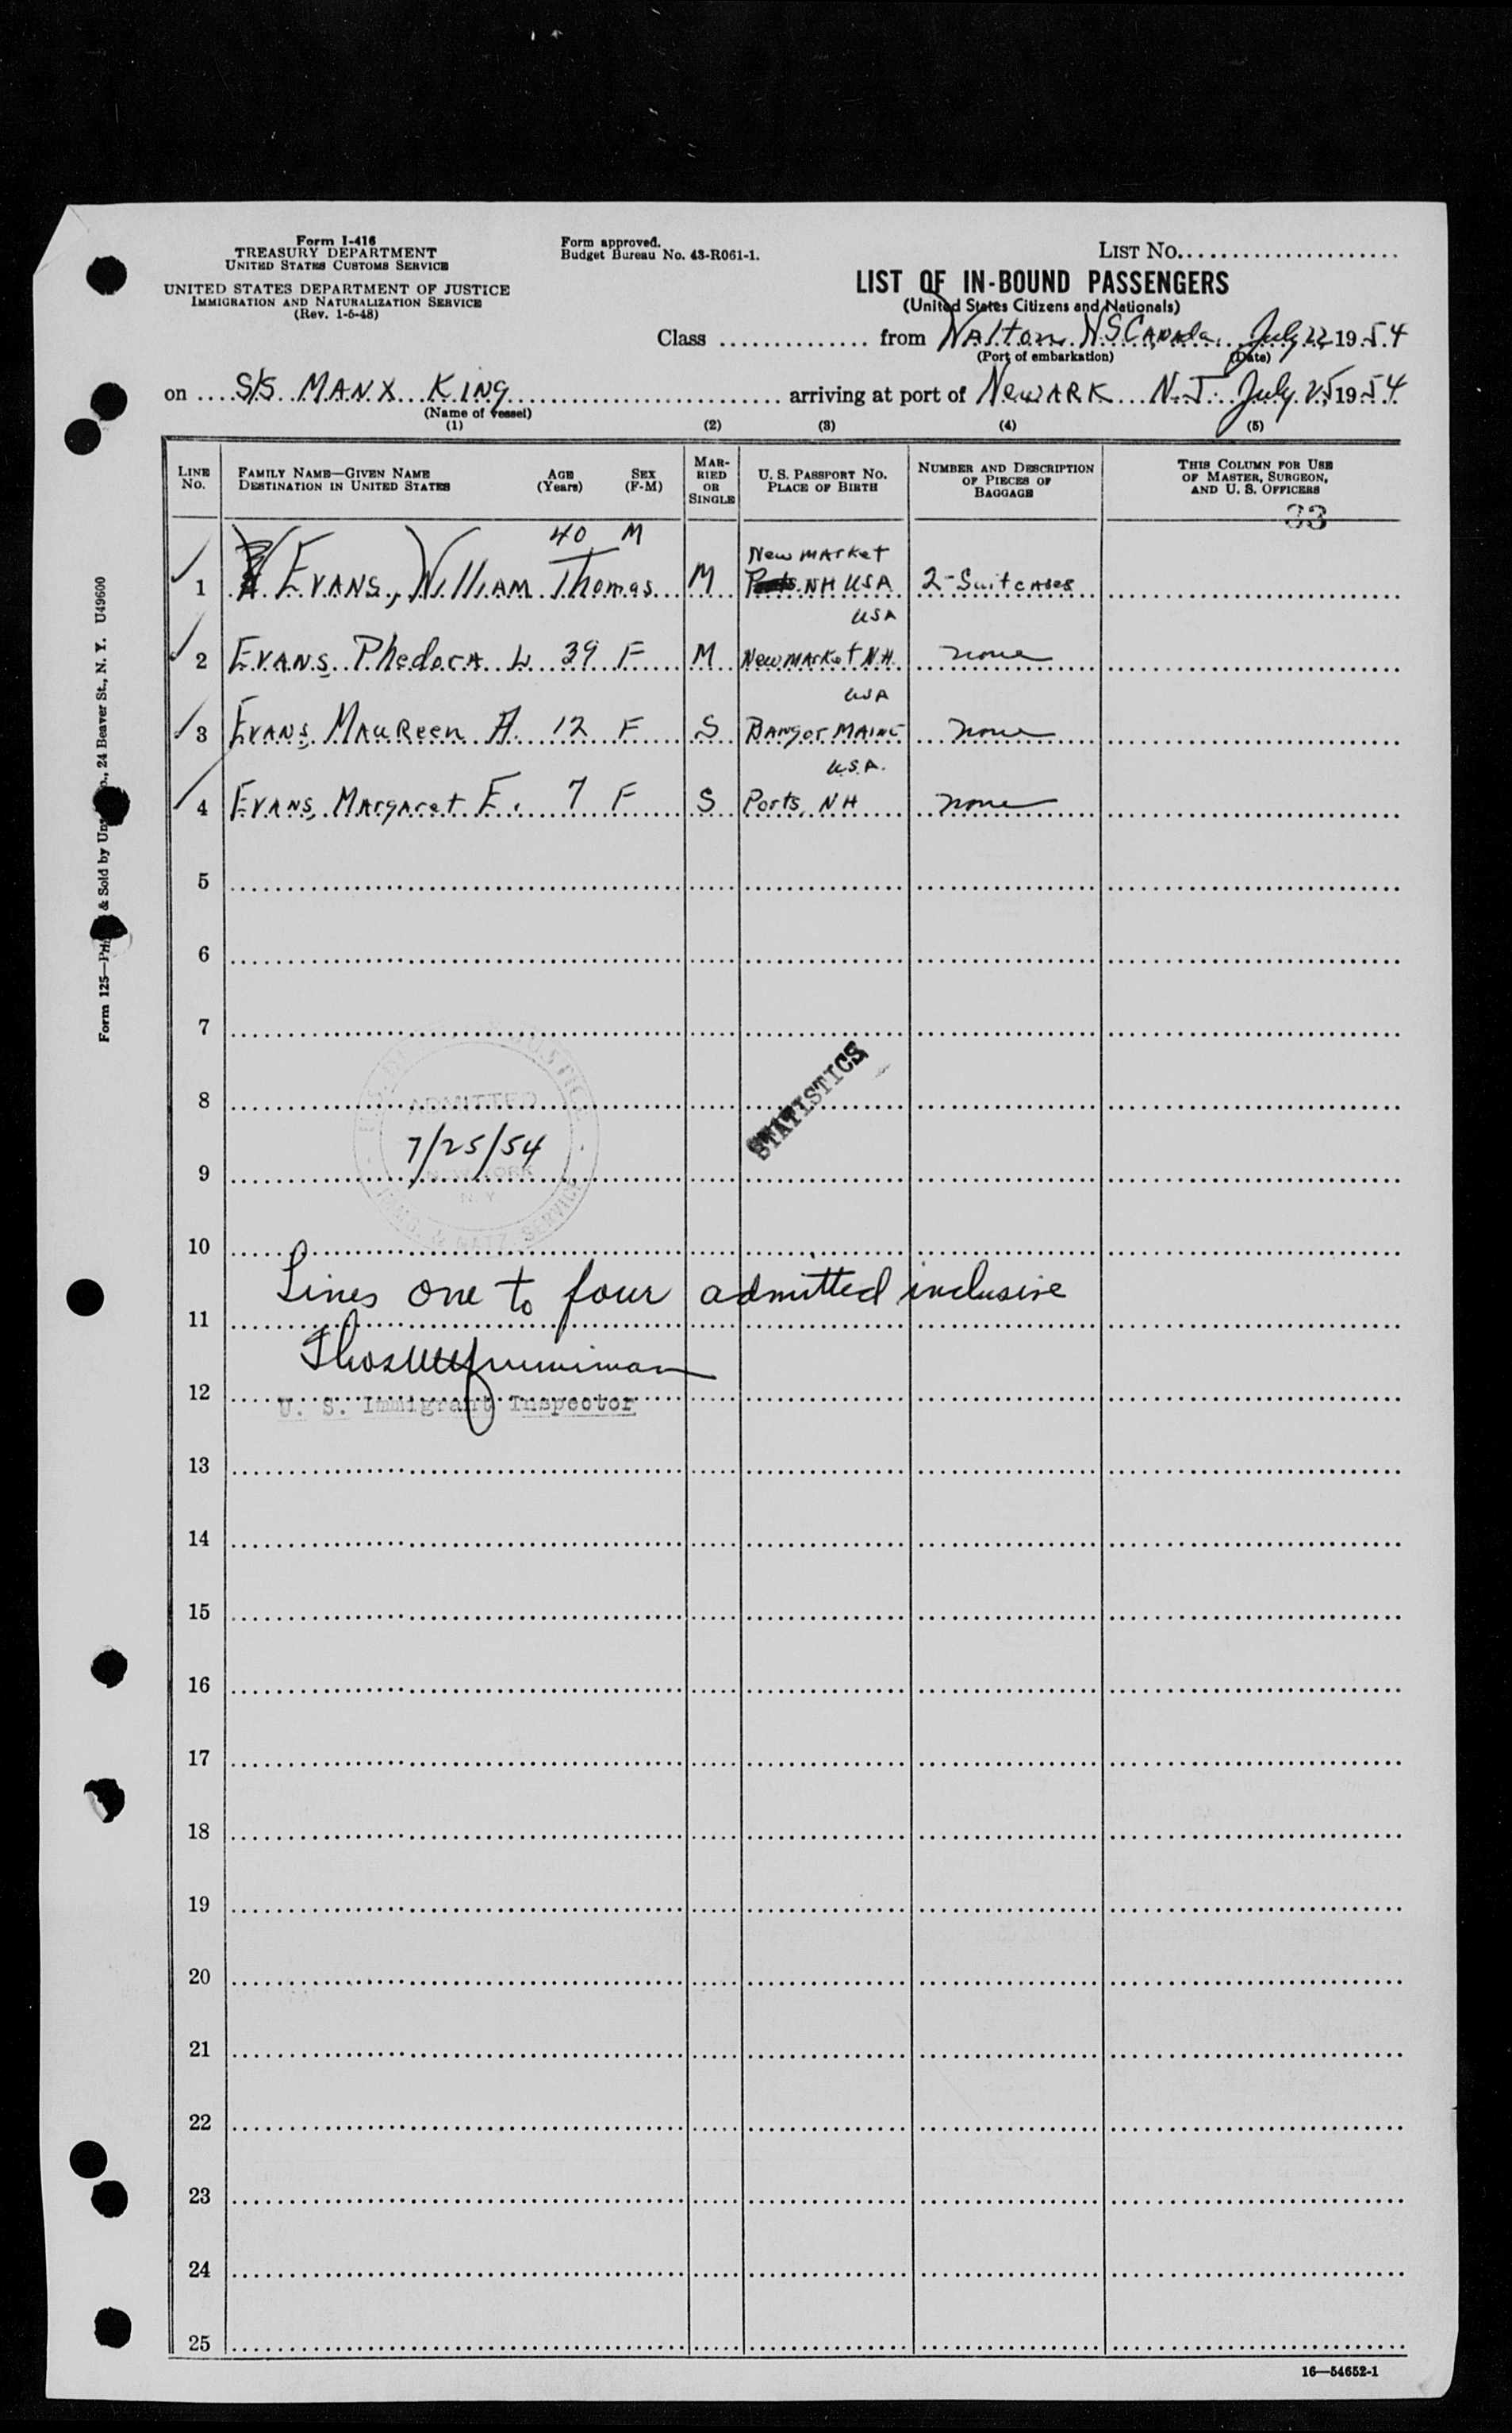 Form I-416
TREASURY DEPARTMENT
UNITED STATES CUSTOMS SERVICE
UNITED STATES DEPARTMENT OF JUSTICE
IMMIGRATION AND NATURALIZATION SERVICE
(Rev. 1-5-48)
Form approved.
Budget Bureau No. 43-R061-1.
LIST NO.
LIST OF IN-BOUND PASSENGERS
(United States Citizens and Nationals)
Class from Walton N.S. Canada, July 22, 1954
(Port of embarkation) (Date)
on S/S MANX KING arriving at port of Newark N.J. July 25, 1954
(Name of vessel)
(1) (2) (3) (4) (5)
LINE NO. FAMILY NAME—GIVEN NAME DESTINATION IN UNITED STATES AGE (Years) SEX (F-M) MARRIED OR SINGLE U. S. PASSPORT NO. PLACE OF BIRTH NUMBER AND DESCRIPTION OF PIECES OF BAGGAGE THIS COLUMN FOR USE OF MASTER, SURGEON, AND U. S. OFFICERS
33
40 M New Market
1 EVANS, William Thomas M NH USA 2-Suitcases
USA
2 EVANS, Phedora L 39 F M New Market N.H. none
USA
3 EVANS, Maureen A. 12 F S Bangor MAINE none
U.S.A.
4 EVANS, Margaret E. 7 F S Ports, NH none
5
6
7
8
ADMITTED
STATISTICS
7/25/54
9
NEW YORK
N. Y.
IMMG. & NATZ. SERVICE
10
Lines one to four admitted inclusive
11
12
U. S. Immigrant Inspector
13
14
15
16
17
18
19
20
21
22
23
24
25
16—54652-1
Form 125—& Sold by 24 Beaver St., N. Y. U49600